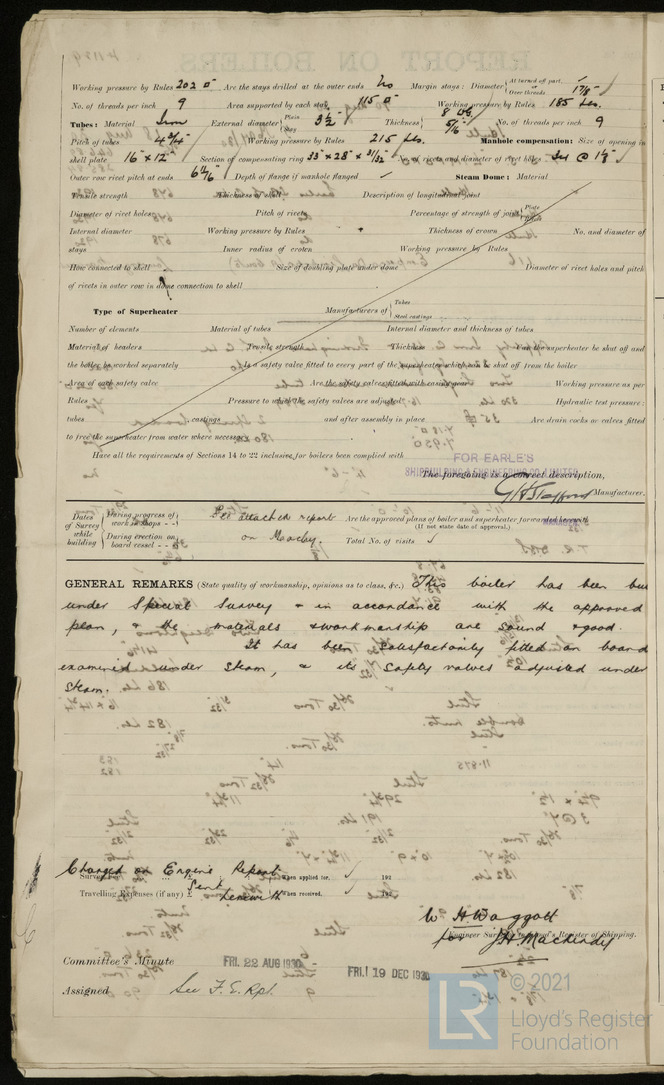 Working pressure by Rules 202 Are the stays drilled at the outer ends No Margin stays: Diameter { At turned off part, Over threads 1 7/8"
No. of threads per inch 9 Area supported by each stay 115 Working pressure by Rules 185 Lbs.
Tubes: Material Iron External diameter { Plain Stay 3 1/2" Thickness { 8 WG. 5/16 No. of threads per inch 9
Pitch of tubes 4 3/4" Working pressure by Rules 215 Lbs. Manhole compensation: Size of opening in
shell plate 16" x 12" Section of compensating ring 33" x 28" x 31/32 No. of rivets and diameter of rivet holes 34 @ 1 1/8"
Outer row rivet pitch at ends Depth of flange if manhole flanged ✓ Steam Dome: Material
Tensile strength Thickness of shell Description of longitudinal joint
Diameter of rivet holes Pitch of rivets Percentage of strength of joint { Plate
Internal diameter Working pressure by Rules Thickness of crown No. and diameter of
stays Inner radius of crown Working pressure by Rules
How connected to shell Size of doubling plate under dome Diameter of rivet holes and pitch
of rivets in outer row in dome connection to shell
Type of Superheater Manufacturers of { Tubes Steel castings
Number of elements Material of tubes Internal diameter and thickness of tubes
Material of headers Tensile strength Thickness Can the superheater be shut off and
the boiler be worked separately Is a safety valve fitted to every part of the superheater which can be shut off from the boiler
Area of each safety valve Are the safety valves fitted with easing gear Working pressure as per
Rules Pressure to which the safety valves are adjusted Hydraulic test pressure:
tubes castings and after assembly in place Are drain cocks or valves fitted
to free the superheater from water where necessary
Have all the requirements of Sections 14 to 22 inclusive for boilers been complied with
FOR EARLE'S
SHIPBUILDING & ENGINEERING CO. LIMITED
The foregoing is a correct description,
Manufacturer.
Dates of Survey while building { During progress of work in shops - - See attached report Are the approved plans of boiler and superheater forwarded herewith
(If not state date of approval.)
{ During erection on board vessel - - - on Machy. Total No. of visits ✓
GENERAL REMARKS (State quality of workmanship, opinions as to class, &c.) This boiler has been bui
under Special Survey & in accordance with the approved
plan, & the materials & workmanship are sound & good.
It has been satisfactorily fitted on board
examined under steam, & its safety valves adjusted under
steam.
Charged on Engine Report
Survey Fee ... ... £ When applied for, 192
Travelling Expenses (if any) £ Sent herewith When received,
W H Waggott
Engineer Surveyor to Lloyd's Register of Shipping.
for
Committee's Minute FRI. 22 AUG 1930 FRI. 19 DEC 1930
Assigned See F.E. Rpt.
© 2021
Lloyd's Register
Foundation